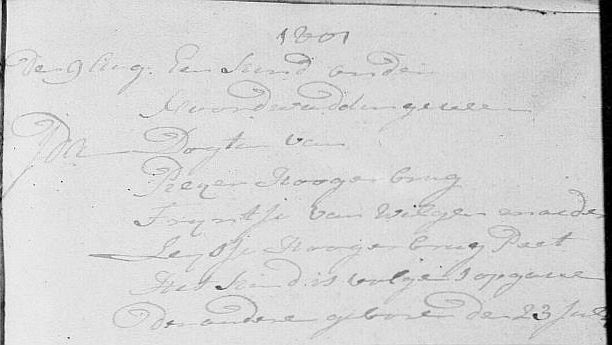 1801
den 9 Aug. Een kind onder
Noordwaddingsveen
Dogter van
Pieter Hoogerbrug
Tryntje van Wilgen
Leysje Hoogerbrug Peet
Het kind is volgens opgave
der ouders geboren den 23